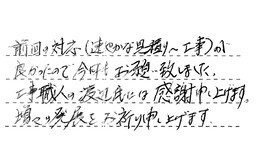 前回の対応(速やかな見積り〜工事)が
良かったので今回もお願い致しました。
工事職人の渡辺氏には感謝申し上げます。
増々の発展をお祈り申し上げます。